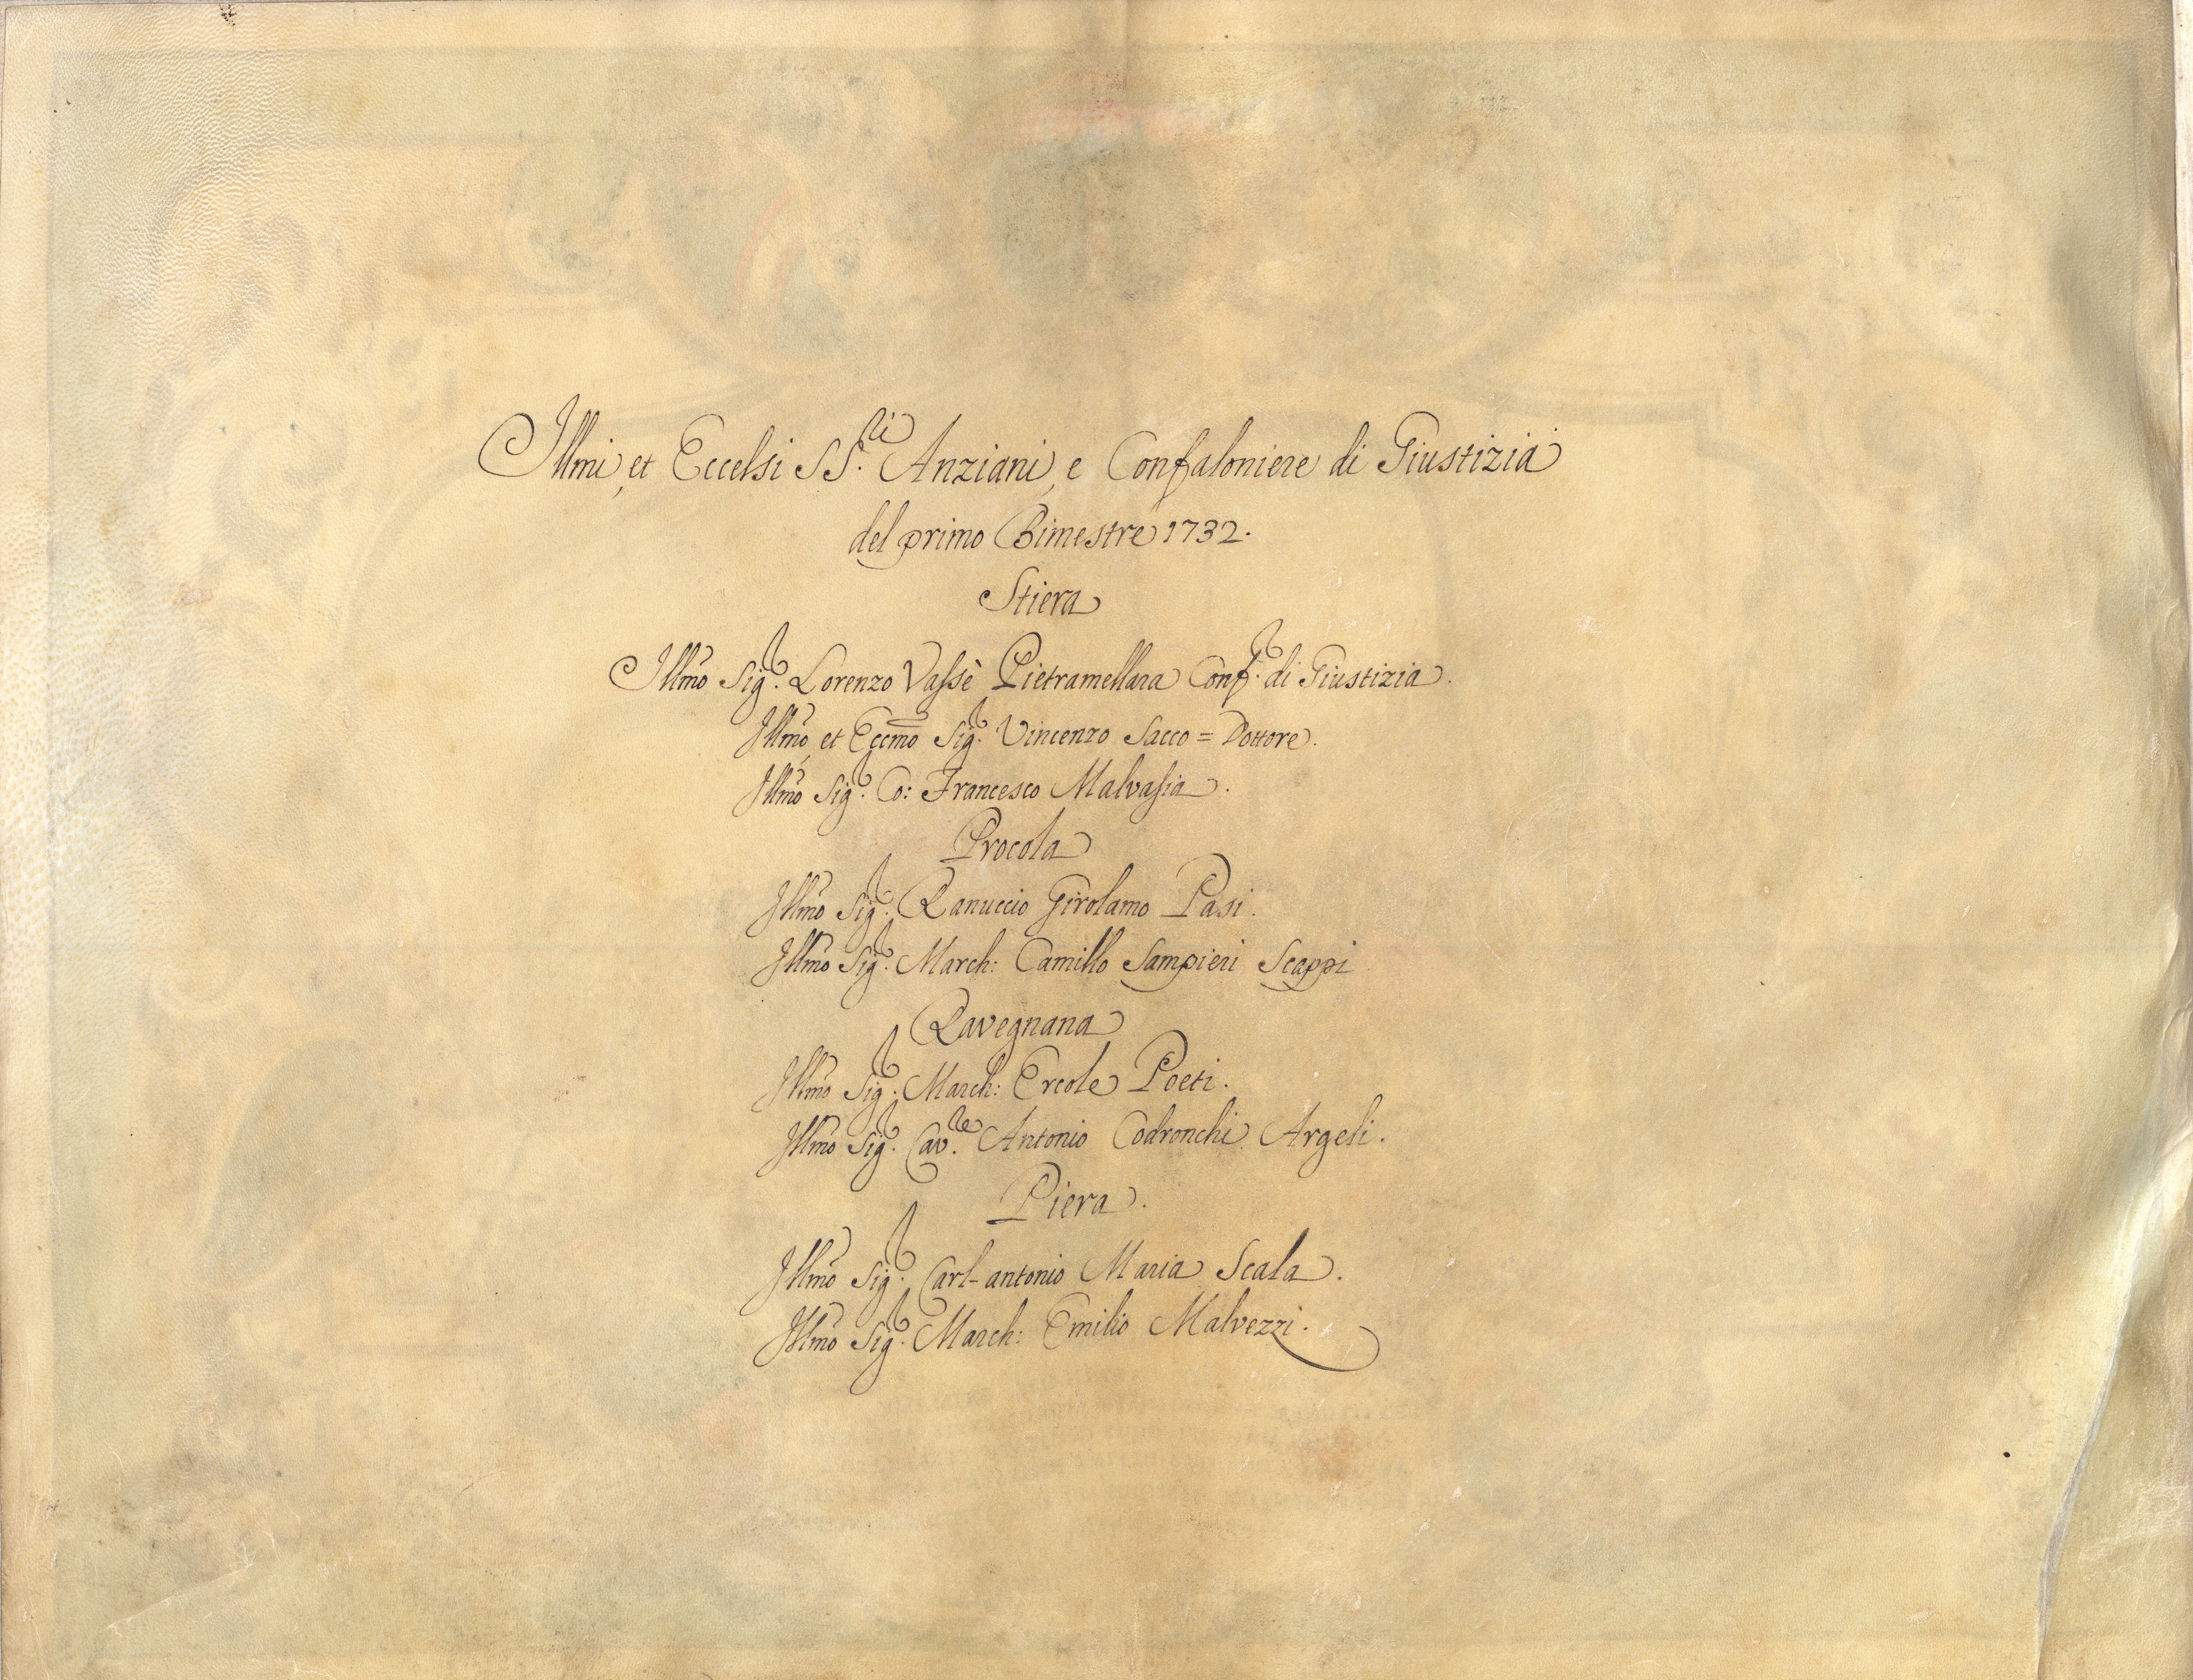 Illmi, et Eccelsi SS.ri Anziani, e Confaloniere di Giustizia
del primo Bimestre 1732.
Stiera
Illmo Sig.r Lorenzo Vassè Pietramellara Conf.r di Giustizia.
Illmo, et Eccmo Sig.r Vincenzo Sacco = Dottore.
Illmo Sig.r Co: Francesco Malvasia.
Procola
Illmo Sig.r Ranuccio Girolamo Pasi.
Illmo Sig.r March: Camillo Sampieri Scappi
Ravegnana
Illmo Sig.r March: Ercole Poeti.
Illmo Sig.r Cav.re Antonio Codronchi Argeli.
Piera.
Illmo Sig.r Carl-antonio Maria Scala.
Illmo Sig.r March: Emilio Malvezzi.